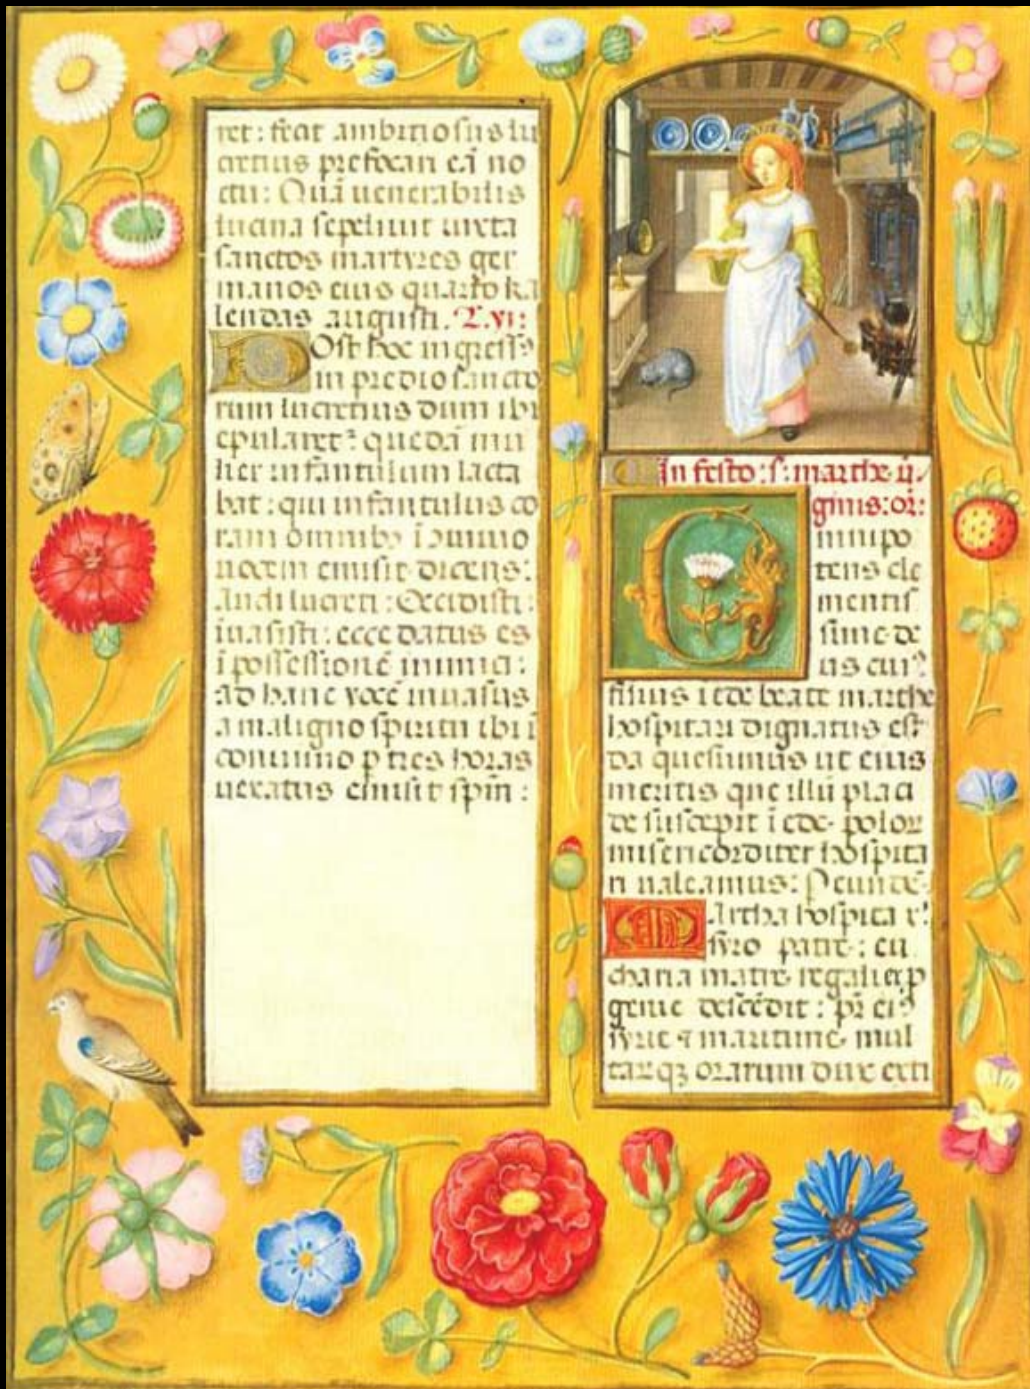 ret: fecit ambitiosus lu
cretius prefocari eā no
ctu: Quā uenerabilis
lucina sepeliuit iuxta
sanctos martyres ger
manos eius quarto ka
lendas augusti. L. vi:
Ost hoc ingressꝰ
in predio sancto
rum lucretius dum ibi
epularetᷣ quedā mu
lier infantulum lacta
bat: qui infantulus co
ram omnibꝰ ī summo
uocem emisit dicens:
Audi lucreti: Occidisti:
inuasisti: ecce datus es
ī possessionē inimici:
ad hanc vocē inuasus
a maligno spiritu ibi ī
conuiuio p tres horas
uexatus emisit spm̄:
In festo: s: marthe ui.
ginis: or̄:
mnipo
tens cle
mentis
sime de
us cuiꝰ
filius ī ede beate marthe
hospitari dignatus est
da quesumus ut eius
meritis que illū placi
de suscepit ī ede polor
misericorditer hospita
ri ualeamus: P eundē
Martha hospita xp̄i
syro patre: eu
charia matre regali ex p
genie descēdit: pr̄ eiꝰ
syrie ⁊ maritime mul
tarqꝫ orarum dux exti